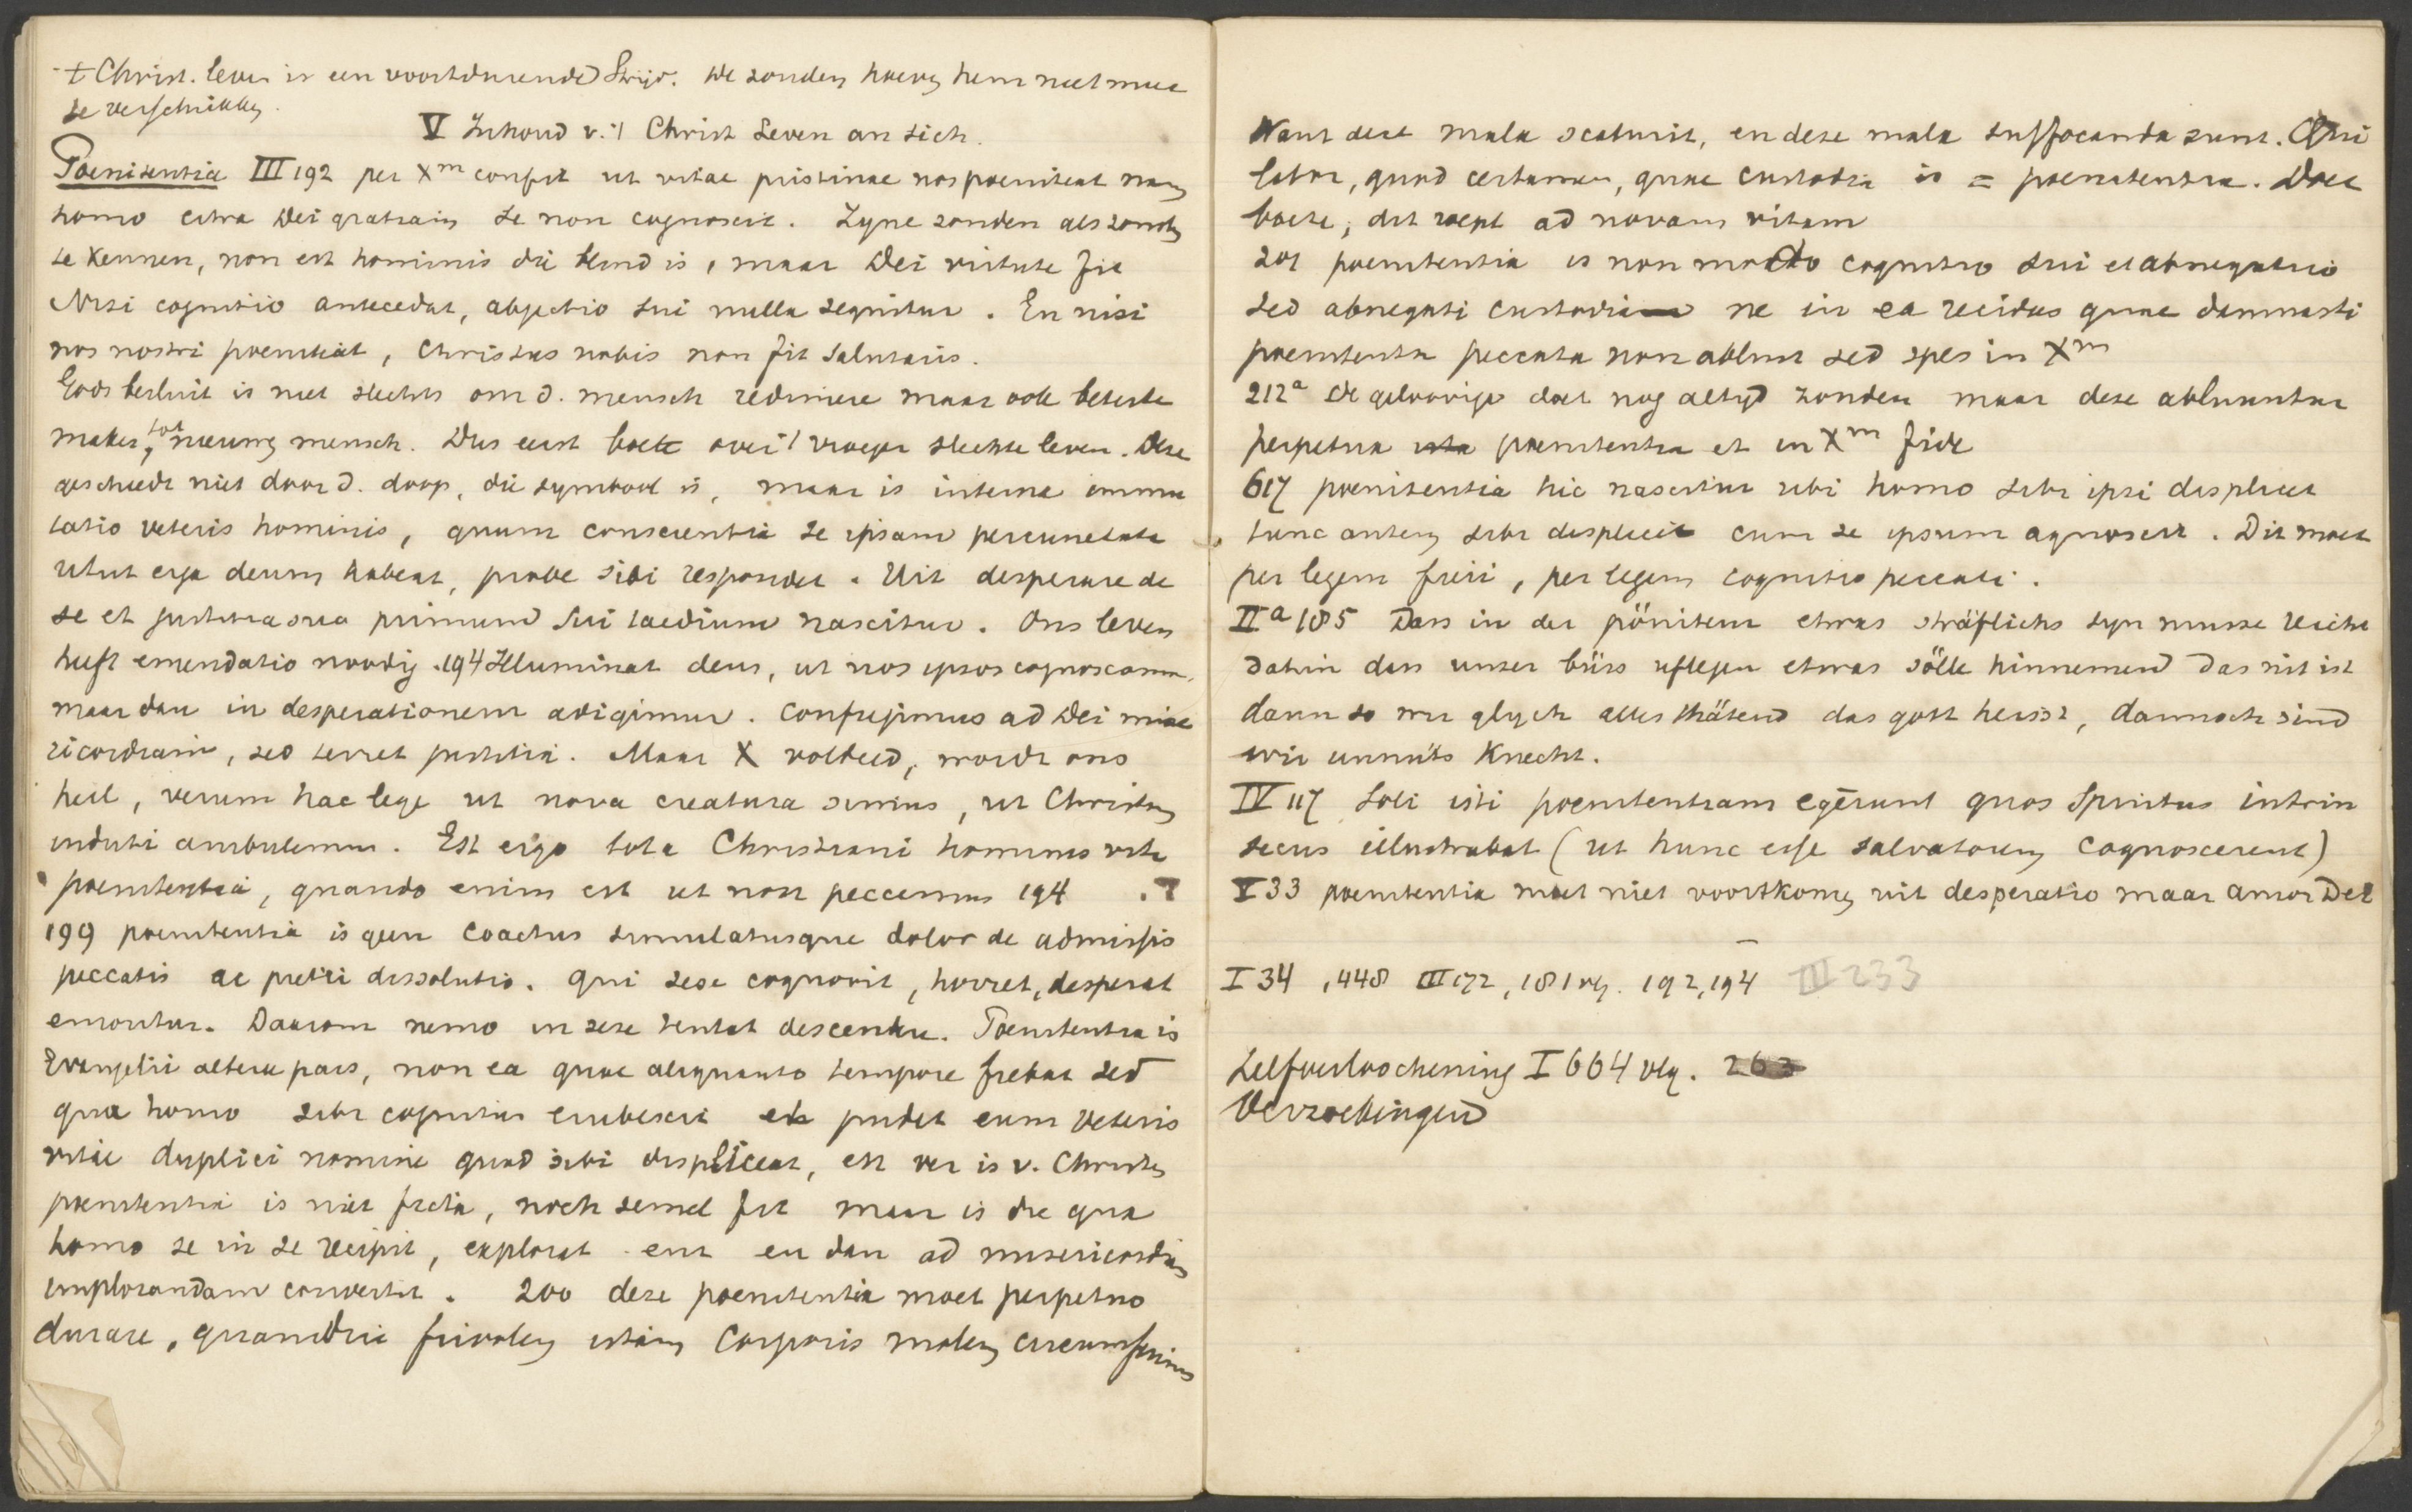 + Christ. leven is een voortdurende Strijd. de zonden hoeven hem niet meer
te verschrikken.
V Inhoud v. 't Christ Leven an sich.
Poenitentia III 192 per Xm confit ut vitae pristinae nos poeniteat nam
homo citra Dei gratiam se non cognoscit. Zyne zonden als zonden
te kennen, non est hominis die blind is, maar Dei virtute fit
Nisi cognitio antecedat, abjectio sui nulla sequitur. En nisi
nos nostri poeniteat, Christus nobis non fit salutaris.
Gods besluit is niet slechts om d. mensch redimere maar ook beter te
maken, tot nieuwen mensch. Dus eerst boete over 't vroeger slechte leven. Deze
geschiedt niet door d. doop, die symbool is, maar is interna immu
tatio veteris hominis, quum conscientia se ipsam percunctata
utut erga deum habeat, probe sibi respondet. Uit desperare de
se et justitia sua primum sui taedium nascitur. Ons leven
heeft emendatio noodig. 194 Illuminat deus, ut nos ipsos cognoscamus,
maar dan in desperationem adigimur. confugimus ad Dei mise
ricordiam, sed terret justitia. Maar X voldeed, wordt ons
heil, verum hac lege ut nova creatura simus, ut Christum
induti ambulemus. Est ergo tota Christiani hominis vita
poenitentia, quando enim est ut non peccemus 194 . T
199 poenitentia is geen coactus simulatusque dolor de admissis
peccatis ac pretii dissolutio. qui sese cognovit, horret, desperat
emoritur. Daarom nemo in sese tentat descendere. Poenitentia is
Evangelii altera pars, non ea quae aliquanto tempore fiebat sed
qua homo sibi cognitus erubescit et pudet eum veteris
vitae duplici nomine quod sibi displiceat, en ver is v. Christen
poenitentia is niet ficta, noch semel fit maar is die qua
homo se in se recipit, explorat en dan ad misericordiam
implorandam convertit. 200 deze poenitentia moet perpetuo
durare, quamdiu frivolam istam corporis molem circumferimus
Want deze mala scaturit, en deze mala suffocanda sunt. Qui
labor, quod certamen, quae custodia is = poenitentia. Doet
boete, dit roept ad novam vitam
201 poenitentia is non modo cognitio sui et abnegatio
sed abnegati custodia ne in ea recidas quae damnasti
poenitentia peccata non abluit sed spes in Xm
212a de geloovige doet nog altyd zonden maar deze abluuntur
perpetua poenitentia et in Xm fide
617 poenitentia hic nascitur ubi homo sibi ipsi displicet
tunc autem sibi displicet cum se ipsum agnoscit. Dit moet
per legem fieri, per legem cognitio peccati.
IIa 185 Dass in der pönitenz etwas sträflichs syn musse reicht
dahin dass unser büss uflegen etwas sölle hinnemend das nit ist
dann so wir glych alles thätend das gott heisst, dannoch sind
wir unnüts Knecht.
IV 117 Soli isti poenitentiam egerunt quos Spiritus intrin
secus illustrabat (ut hunc esse salvatorem cognoscerent)
V 33 poenitentia moet niet voortkomen uit desperatio maar amor Dei
I 34, 448 III 172, 181 vlg. 192, 194 III 233
Zelfverloochening I 664 vlg. 263
Verzoekingen